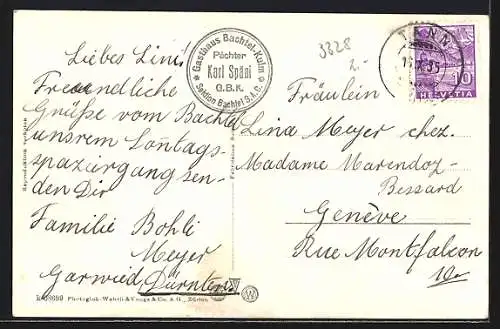 Liebes Lini!
Freundliche
Grüsse vom Bachtel
unsrem Sontags-
spaziergang sen-
den Dir
Familie Bohli
Meyer
Garwied, Dürnten
Gasthaus Bachtel-Kulm
Pächter
Karl Späni
G.B.K.
Sektion Bachtel S.A.C.
3328
2.-
TANN
10
HELVETIA
Fräulein
Lina Meyer chez.
Madame Marendoz-
Bessard
Genève
Rue Montfalcon
Reproduktion verboten
Photoglob-Wehrli & Vouga & Co. A.G., Zürich